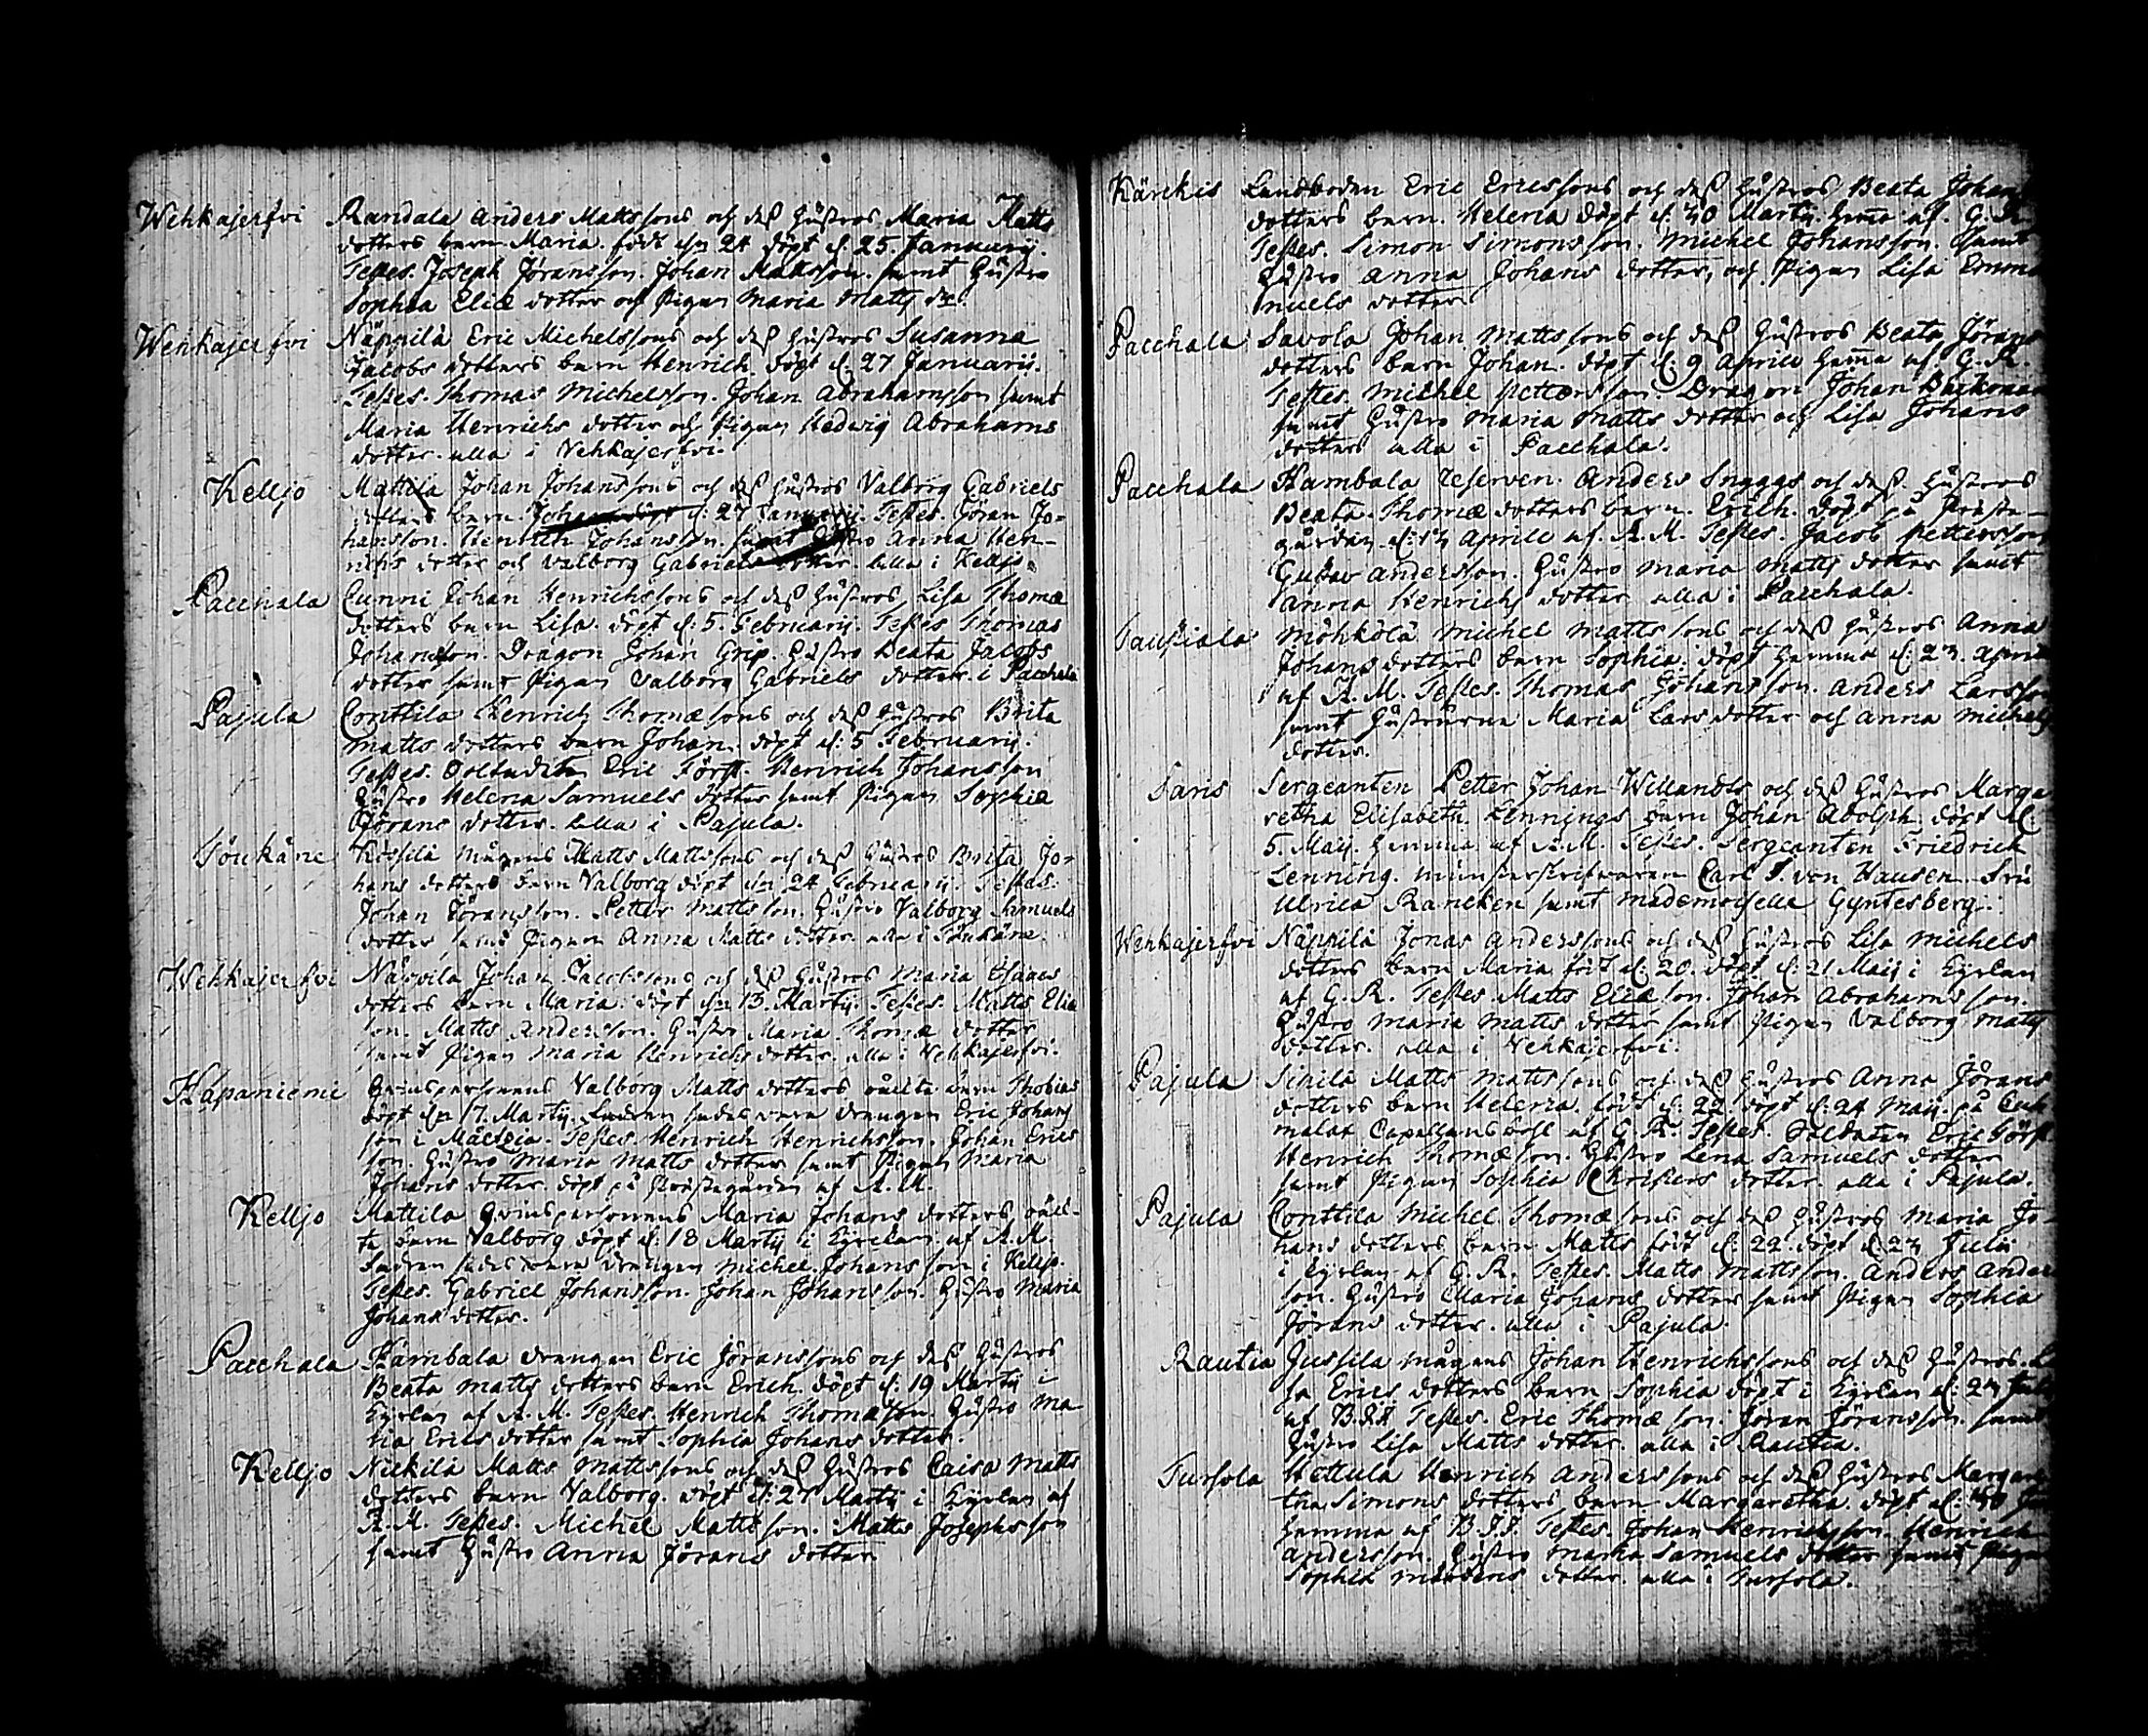 Wehkajerfvi Randala Anders Mattssons och dess hustros Maria Matts
dotters barn Maria född den 24 döpt d. 25 Januarij.
Testes. Joseph Jöransson. Johan Mattsson. samt hustro
Sophia Eliæ dotter och Pigan Maria Matts dr.
Wehkajerfvi Näppilä Eric Michelssons och dess hustros Susanna
Jacobs dotters barn Henrich. döpt d. 27 Januarii.
Testes. Thomas Michelsson. Johan Abrahamsson samt
Maria Henrichs dotter och Pigan Hedwig Abrahams
dotter. alla i Vehkajerfvi.
Kelljo Mattila Johan Johanssons och dess hustros Valborg Gabriels
dotters barn Johan döpt d: 27 Januarij. Testes. Jöran Jo-
hansson. Henrich Johansson. samt hustro Anna Hen-
richs dotter och Valborg Gabriels dotter. alla i Kelljo.
Pacchala Cunni Johan Henrichssons och dess hustros Lisa Thomæ
dotters barn Lisa. döpt d. 5. Februarij. Testes Thomas
Johansson. Dragon Johan Grip. hustro Beata Jacobs
dotter samt Pigan Valborg Gabriels dotter. i Pacchala
Pajula Conttila Henrich Thomæsons och dess hustros Brita
Matts dotters barn Johan. döpt d: 5 Februarij.
Testes. Soldaten Eric Först. Henrich Johansson
hustro Helena Samuels dotter samt Pigan Sophia
Jörans dotter. alla i Pajula.
Töukäne Kissilä mågens Matts Mattssons och dess hustros Brita Jo-
hans dotters barn Valborg döpt den 24 Februarij. Testes.
Johan Jöransson. Petter Mattsson. hustro Valborg Samuels
dotter samt Pigan Anna Matts dotter alla i Töukäne.
Wehkajerfvi Näppila Johan Jacobssons och dess hustros Maria Isaacs
dotters barn Maria. döpt den 13. Martij. Testes. Matts Eliæ
son. Matts Andersson. hustro Maria Thomæ dotter
samt Pigan Maria Henrichs dotter. alla i Wehkajerfvi.
Hapaniemi Qvinspersonens Valborg Matts dotters oäckta barn Thobias
döpt den 17. Martij. Fadren sades vara drengen Eric Johans
son i . Testes. Henrich Henrichsson. Johan Erics
son. hustro Maria Matts dotter samt Pigan Maria
Johans dotter. döpt på Prästegården af A. M.
Kelljo Mattila Qvinspersonens Maria Johans dotters oäck-
ta barn Valborg döpt d. 18 Martij i Kyrckan af A. M.
Fadren sades vara drengen Michel Johansson i Kelljo.
Testes. Gabriel Johansson. Johan Johansson. hustro Maria
Johans dotter.
Pacchala Kambala drengen Eric Jöranssons och dess hustros
Beata Matts dotters barn Erich. döpt d. 19 Martij i
Kyrckan af A. M. Testes. Henrich Thomæsson. hustro Ma-
ria Erics dotter samt Sophia Johans dotter.
Kelljo Nickilä Matts Mattssons och dess hustros Caisa Matts
dotters barn Valborg. döpt d: 27 Martij i Kyrckan af
A. M. Testes. Michel Mattsson. Matts Josephsson
samt hustro Anna Jörans dotter
Kärckis Landboden Eric Ericssons och dess hustros Beata Johans
dotters barn. Helena döpt d. 30 Martij. hema af. G. R.
Testes. Simon Simonsson. Michel Johansson. samt
hustro Anna Johans dotter, och Pigan Lisa Emma
nuels dotter.
Pacchala Savola Johan Mattssons och dess hustros Beata Jörans
dotters barn Johan. döpt d. 9 Aprile hema af G. R.
Testes. Michel Pettersson. Dragon Johan
samt hustro Maria Matts dotter och Lisa Johans
dotter alla i Pacchala.
Pacchala Kambala Reserven. Anders Snyggs och dess hustros
Beata Thomæ dotters barn. Erich. döpt på Präste-
gården d: 17 Aprile af. A. M. Testes. Jacob Pettersson
Gustav Andersson. hustro Maria Matts dotter samt
Anna Henrichs dotter alla i Pacchala.
Möhkölä Michel Mattssons och dess hustros Anna
Johans dotters barn Sophia. döpt hemma d: 23. Aprile
af A. M. Testes. Thomas Johansson. Anders Larsson
samt hustrurna Maria Lars dotter och Anna Michels
dotter.
Saris Sergeanten Petter Johan Willandts och dess hustros Marga
retha Elisabeth Lennings barn Johan Adolph. döpt d.
5. Maij. hemma af A. M. Testes. Sergeanten Friedrich
Lenning. Münsterskrifvaren Carl J. von Hausen. Fru
Ulrica Rancken samt Mademoiselle Gyntesberg.
Wehkajerfvi Näppilä Jonas Anderssons och dess hustros Lisa Michels
dotters barn Maria född d. 20. döpt d. 21 Maij i Kyrckan
af G. R. Testes. Matts Eliæson. Johan Abrahamsson.
hustro Maria Matts dotter samt Pigan Valborg Matts
dotter. alla i Vehkajerfvi.
Pajula Sihila Matts Mattssons och dess hustros Anna Jörans
dotters barn Helena. född d. 22. döpt d. 24 Maij på Cuh
malax Capellansbohl af G. R. Testes. Soldaten Eric Först
Henrich Thomæson. hustro Lena Samuels dotter
samt Pigan Sophia Christers dotter. alla i Pajula.
Pajula Conttila Michel Thomæsons och dess hustros Maria Jo-
hans dotters barn Matts född d. 22. döpt d. 23 Julii
i Kyrckan af G. R. Testes. Matts Mattsson. Anders Anders
son. hustro Maria Johans dotter samt Pigan Sophia
Jörans dotter. alla i Pajula.
Rautia Jussila mågens Johan Henrichssons och dess hustros. Li
sa Erics dotters barn Sophia döpt i Kyrckan d. 23 Julii
af B. Testes. Eric Thomæson. Jöran Jöransson. samt
hustro Lisa Matts dotter. alla i Rautia.
Tursola Hettula Henrich Anderssons och dess hustros Margare
tha Simons dotters barn Margaretha. döpt d. 30
hemma af B. Testes. Johan Henrichsson. Henrich
Andersson. hustro Maria Samuels dotter samt Pigan
Sophia Mårtens dotter. alla i Tursola.